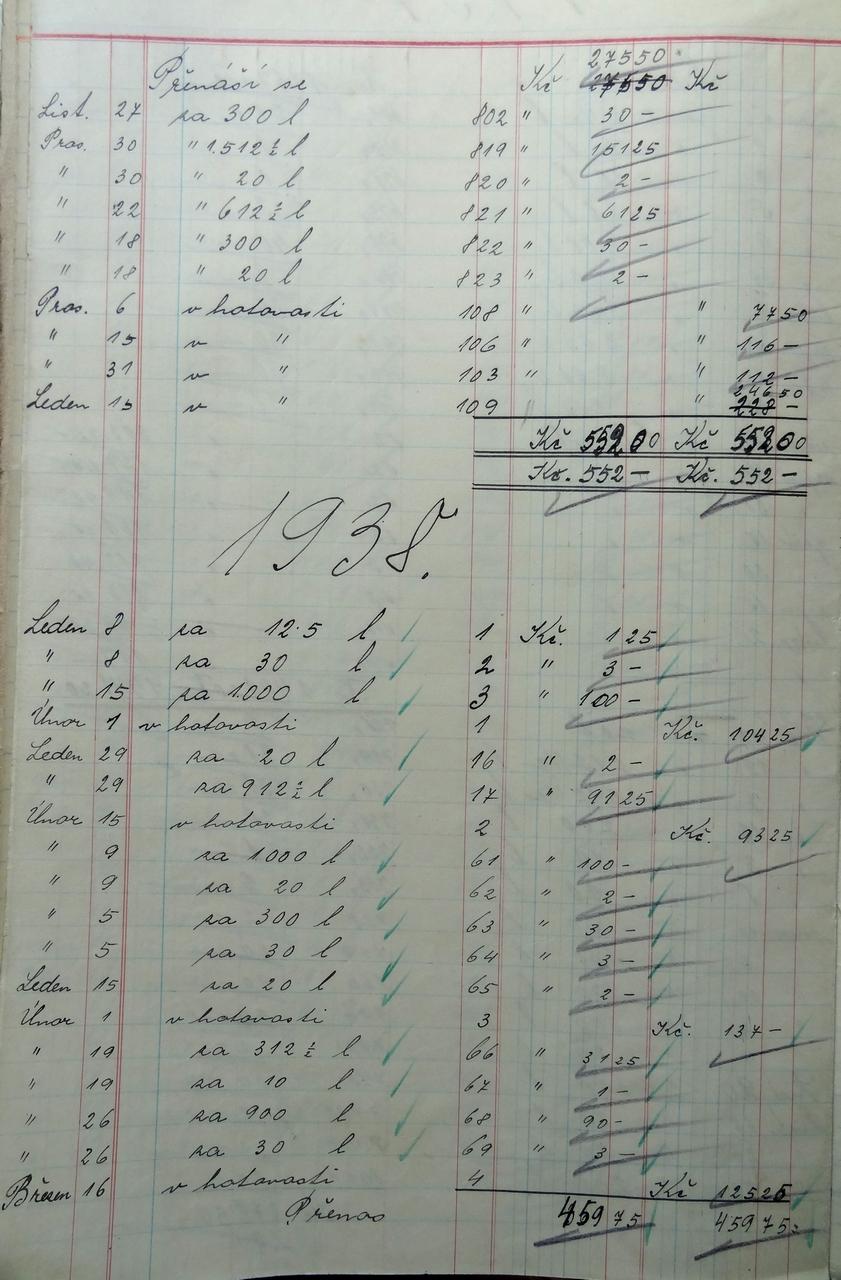 27550
Přenáší se Kč 27550 Kč
List. 27 za 300 l 802 " 30 -
Pros. 30 " 1.512 ½ l 819 " 15125
" 30 " 20 l 820 " 2 -
" 22 " 612 ½ l 821 " 6125
" 18 " 300 l 822 " 30 -
" 18 " 20 l 823 " 2 -
Pros. 6 v hotovosti 108 " " 7750
" 15 v " 106 " " 116 -
" 31 v " 103 " " 112 -
246 50
Leden 15 v " 109 " " 228 -
Kč 55200 Kč 55200
Kč. 552 - Kč. 552 -
1938.
Leden 8 za 12·5 l 1 Kč. 125
" 8 za 30 l 2 " 3 -
" 15 za 1.000 l 3 " 100 -
Únor 1 v hotovosti 1 Kč. 10425
Leden 29 za 20 l 16 " 2 -
" 29 za 912 ½ l 17 " 9125
Únor 15 v hotovosti 2 Kč. 9325
" 9 za 1000 l 61 " 100 -
" 9 za 20 l 62 " 2 -
" 5 za 300 l 63 " 30 -
" 5 za 30 l 64 " 3 -
Leden 15 za 20 l 65 " 2 -
Únor 1 v hotovosti 3 Kč. 137 -
" 19 za 312 ½ l 66 " 3125
" 19 za 10 l 67 " 1 -
" 26 za 900 l 68 " 90 -
" 26 za 30 l 69 " 3 -
Březen 16 v hotovosti 4 Kč 12525
Přenos 45975 45975=